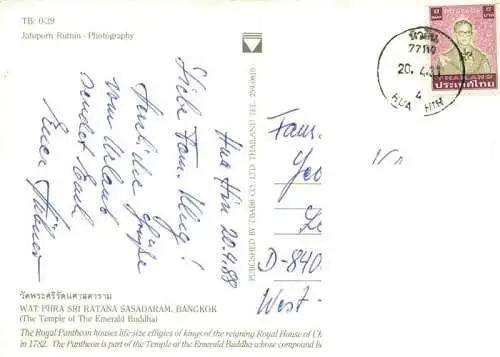 TB: 0-29
Jatuporn Rutnin - Photography
Hua Hin 20.4.88
Liebe Fam. Kling!
Herzliche Grüße
vom Urlaub
sendet Euch
Euer
PUBLISHED BY T.BABB CO.,LTD. THAILAND TEL. 279-0810
หัวหิน
77110
20. 4. 31
4
HUA HIN
POSTAGE
THAILAND
ประเทศไทย
Fam.
D-840
West-
วัดพระศรีรัตนศาสดาราม
WAT PHRA SRI RATANA SASADARAM, BANGKOK
(The Temple of The Emerald Buddha)
The Royal Pantheon houses life-size effigies of kings of the reigning Royal House of
in 1782. The Pantheon is part of the Temple of the Emerald Buddha whose compound